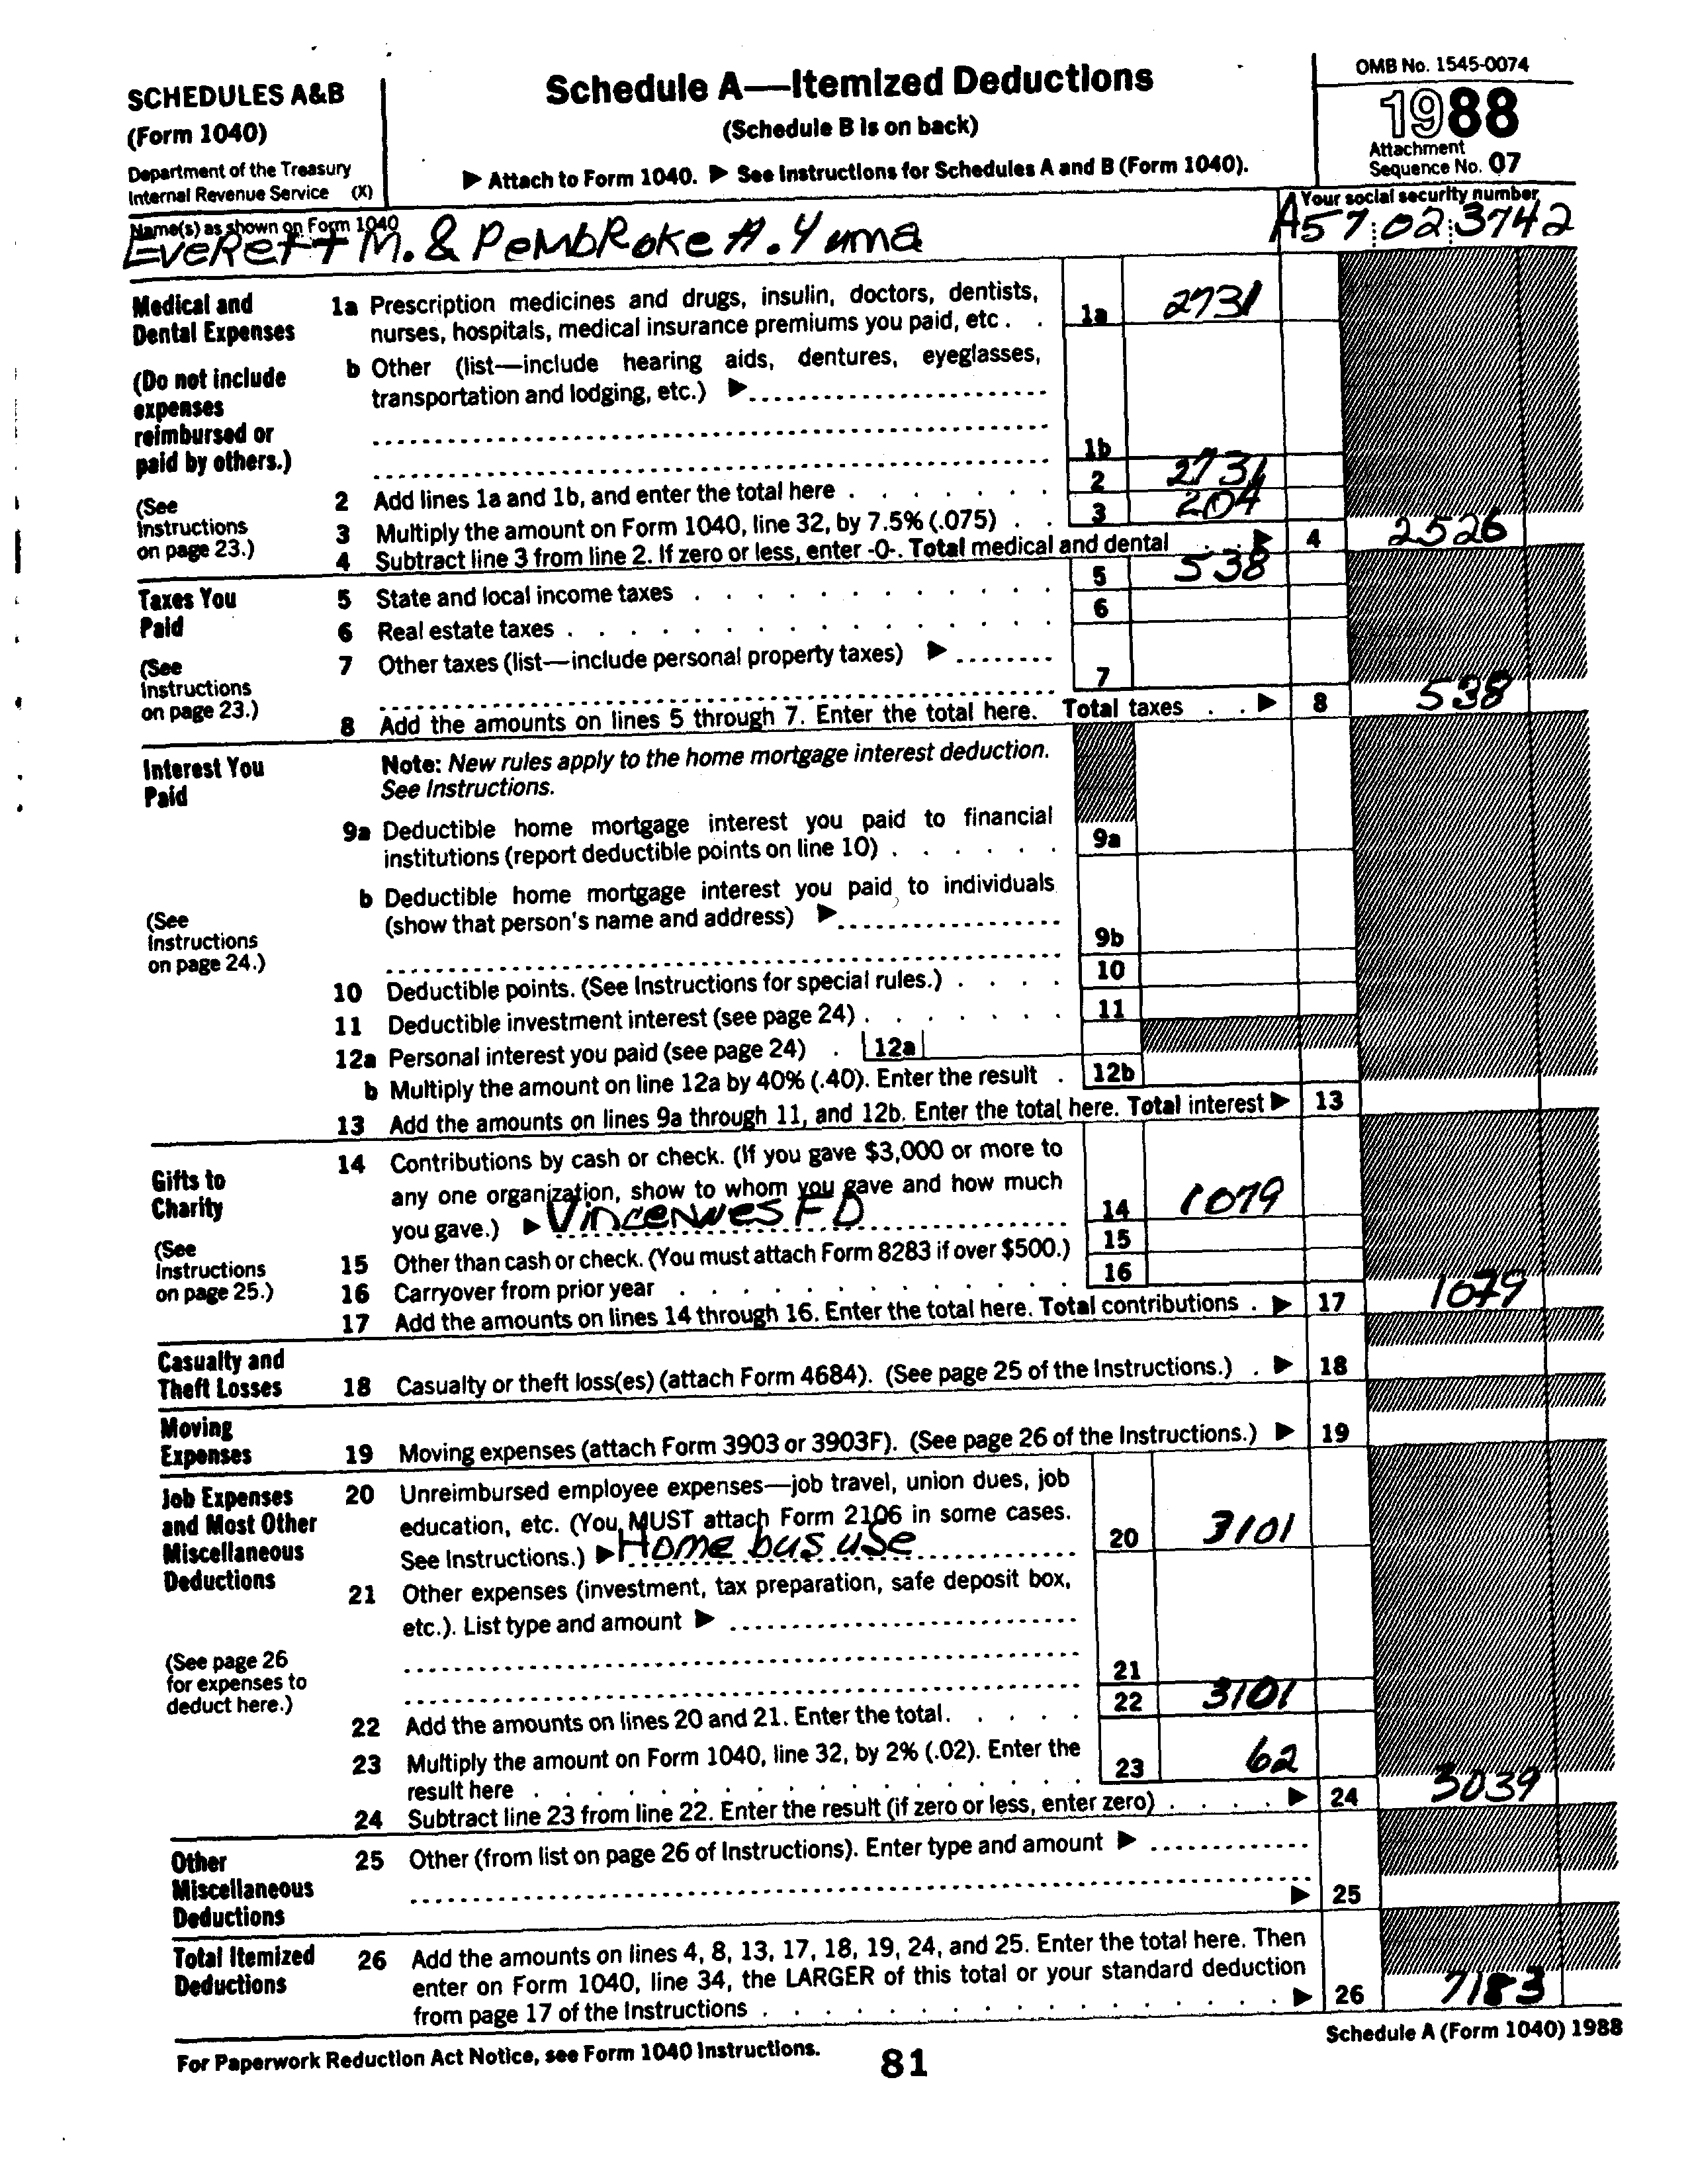 SCHEDULES A&B
(Form 1040)
Department of the Treasury
Internal Revenue Service (X)
Schedule A—Itemized Deductions
(Schedule B is on back)
▶ Attach to Form 1040. ▶ See Instructions for Schedules A and B (Form 1040).
OMB No. 1545-0074
1988
Attachment
Sequence No. 07
Name(s) as shown on Form 1040
Everett M. & Pembroke A. Yuma
Your social security number
A57 02 3742
Medical and
Dental Expenses
(Do not include
expenses
reimbursed or
paid by others.)
(See
Instructions
on page 23.)
1a Prescription medicines and drugs, insulin, doctors, dentists,
nurses, hospitals, medical insurance premiums you paid, etc . . 1a 2731
b Other (list—include hearing aids, dentures, eyeglasses,
transportation and lodging, etc.) ▶
1b
2 Add lines 1a and 1b, and enter the total here . . . . . . . 2 2731
3 Multiply the amount on Form 1040, line 32, by 7.5% (.075) . . 3 204
4 Subtract line 3 from line 2. If zero or less, enter -0-. Total medical and dental . . ▶ 4 2526
Taxes You
Paid
(See
Instructions
on page 23.)
5 State and local income taxes . . . . . . . . . . . . 5 538
6 Real estate taxes . . . . . . . . . . . . . . . . 6
7 Other taxes (list—include personal property taxes) ▶
7
8 Add the amounts on lines 5 through 7. Enter the total here. Total taxes . . ▶ 8 538
Interest You
Paid
(See
Instructions
on page 24.)
Note: New rules apply to the home mortgage interest deduction.
See Instructions.
9a Deductible home mortgage interest you paid to financial
institutions (report deductible points on line 10) . . . . . . 9a
b Deductible home mortgage interest you paid to individuals
(show that person's name and address) ▶
9b
10 Deductible points. (See Instructions for special rules.) . . . . 10
11 Deductible investment interest (see page 24) . . . . . . . 11
12a Personal interest you paid (see page 24) . 12a
b Multiply the amount on line 12a by 40% (.40). Enter the result . 12b
13 Add the amounts on lines 9a through 11, and 12b. Enter the total here. Total interest ▶ 13
Gifts to
Charity
(See
Instructions
on page 25.)
14 Contributions by cash or check. (If you gave $3,000 or more to
any one organization, show to whom you gave and how much
you gave.) ▶ Vincennes FD 14 1079
15 Other than cash or check. (You must attach Form 8283 if over $500.) 15
16 Carryover from prior year . . . . . . . . . . . . . 16
17 Add the amounts on lines 14 through 16. Enter the total here. Total contributions . ▶ 17 1079
Casualty and
Theft Losses
18 Casualty or theft loss(es) (attach Form 4684). (See page 25 of the Instructions.) . ▶ 18
Moving
Expenses
19 Moving expenses (attach Form 3903 or 3903F). (See page 26 of the Instructions.) ▶ 19
Job Expenses
and Most Other
Miscellaneous
Deductions
(See page 26
for expenses to
deduct here.)
20 Unreimbursed employee expenses—job travel, union dues, job
education, etc. (You MUST attach Form 2106 in some cases.
See Instructions.) ▶ Home bus use 20 3101
21 Other expenses (investment, tax preparation, safe deposit box,
etc.). List type and amount ▶
21
22 Add the amounts on lines 20 and 21. Enter the total. . . . . 22 3101
23 Multiply the amount on Form 1040, line 32, by 2% (.02). Enter the
result here . . . . . . . . . . . . . . . . . . 23 62
24 Subtract line 23 from line 22. Enter the result (if zero or less, enter zero) . . . . ▶ 24 3039
Other
Miscellaneous
Deductions
25 Other (from list on page 26 of Instructions). Enter type and amount ▶
▶ 25
Total Itemized
Deductions
26 Add the amounts on lines 4, 8, 13, 17, 18, 19, 24, and 25. Enter the total here. Then
enter on Form 1040, line 34, the LARGER of this total or your standard deduction
from page 17 of the Instructions . . . . . . . . . . . . . . . . . ▶ 26 7183
For Paperwork Reduction Act Notice, see Form 1040 Instructions.
Schedule A (Form 1040) 1988
81